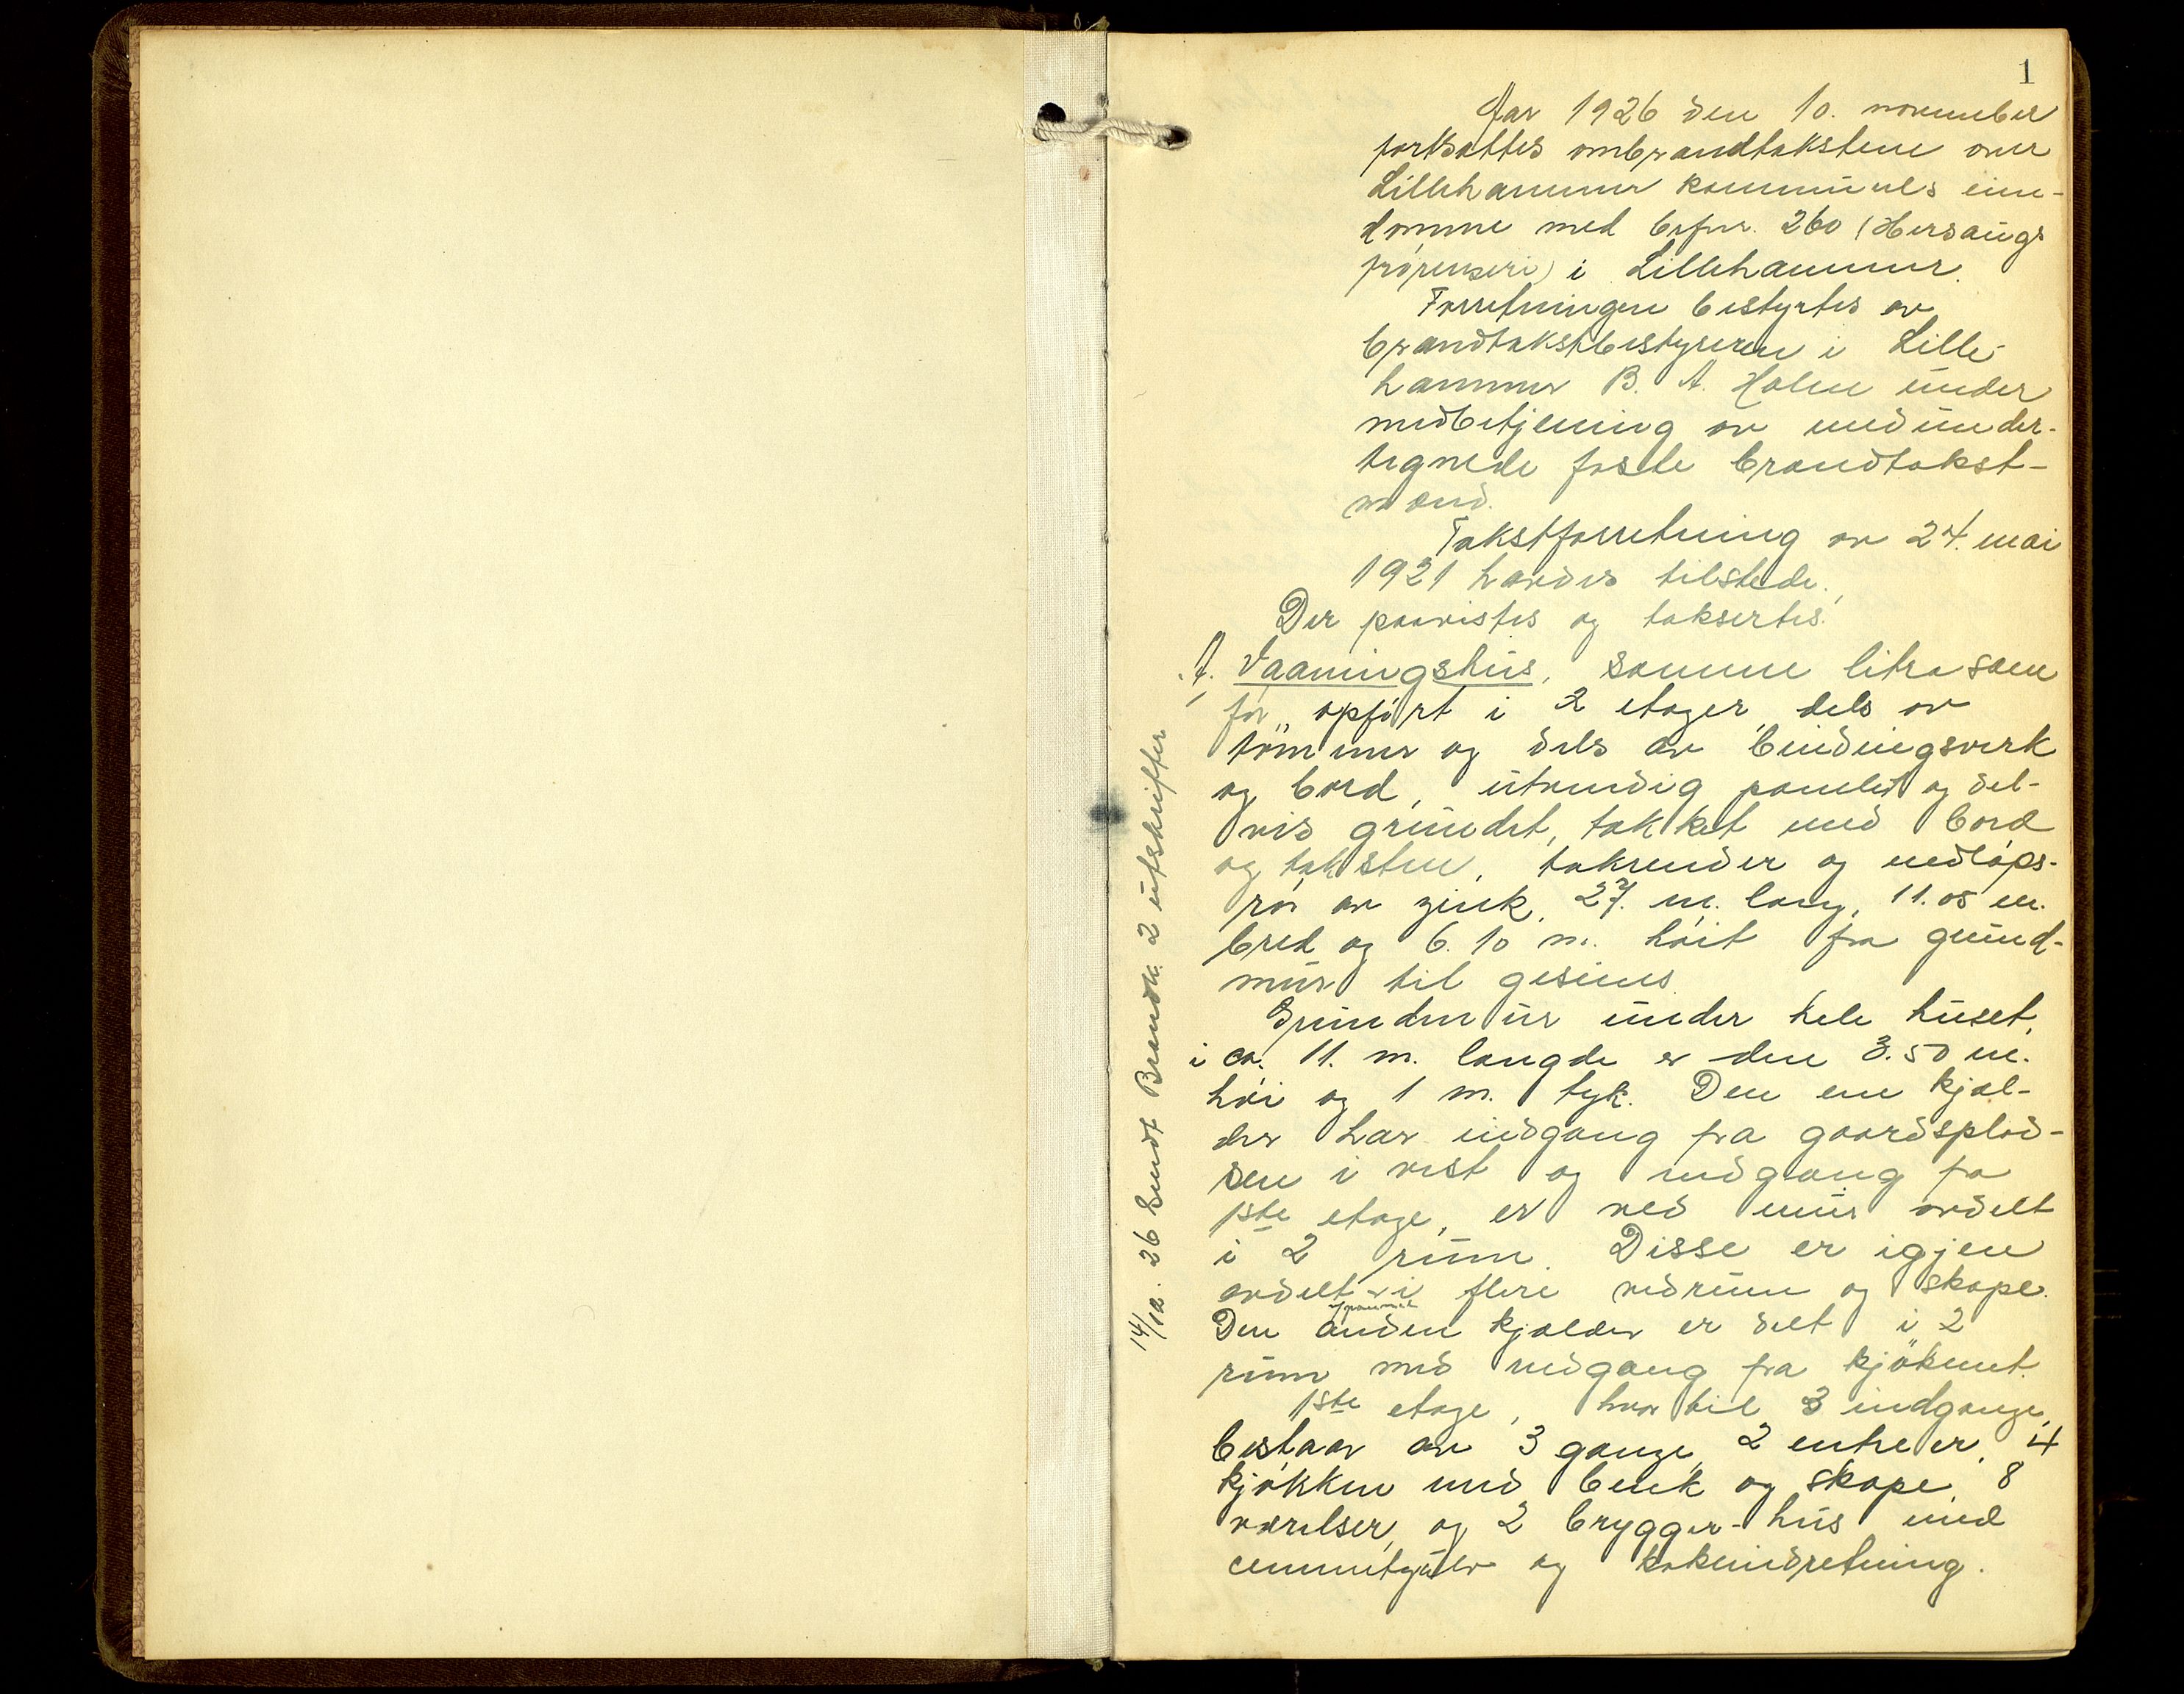 1
Aar 1926 den 10. november
fortsattes ombrandtakstene over
Lillehammer kommunes eien-
domme med brfnr. 260 (Hersaugs
frørenseri) i Lillehammer.
Forretningen bestyrtes av
brandtakstbestyreren i Lille-
hammer B. A. Holm under
medbetjening av medunder-
tegnede faste brandtakst-
mænd.
Takstforretning av 24. mai
1921 havdes tilstede.
Der paavistes og taksertes:
A. Vaaningshus, samme litra som
før, opført i 2 etager dels av
tømmer og dels av bindingsverk
og bord, utvendig panelet og del-
vis grundet, tækket med bord
og taksten, takrender og nedløps-
rør av zink, 27. m. lang, 11.05 m.
bred og 6.10 m. høit fra grund-
mur til gesims.
Grundmur under hele huset,
i ca. 11. m. længde er den 3.50 m.
høi og 1 m. tyk. Den ene kjæl-
der har indgang fra gaardsplad-
sen i vest og nedgang fra
1ste etage, er ved mur avdelt
i 2 rum. Disse er igjen
avdelt i flere vedrum og skape.
Den anden kjælder er delt i 2
rum med nedgang fra kjøkenet.
1ste etage, hvortil 3 indgange,
bestaar av 3 gange, 2 entreer, 4
kjøkken med benk og skape, 8
værelser, og 2 brygger-hus med
cementgulv og kokeindretning.
14/12. 26 Sendt Brandk. 2 utskrifter